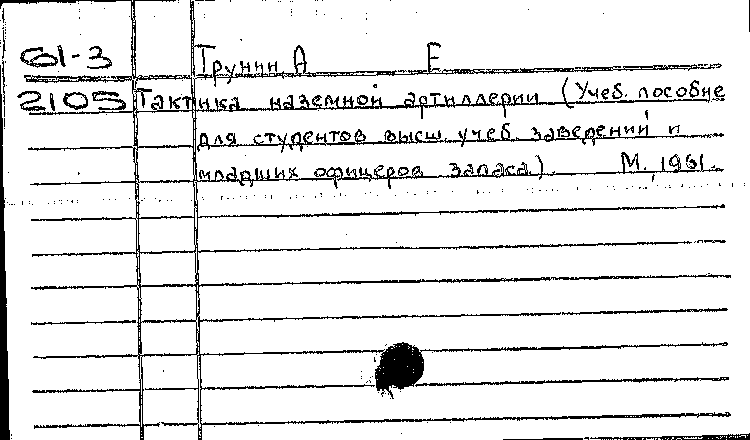 61-3 Трунин, А Е
2105 Тактика наземной артиллерии (Учеб. пособие
для студентов высш. учеб. заведений и
младших офицеров запаса). М., 1961.